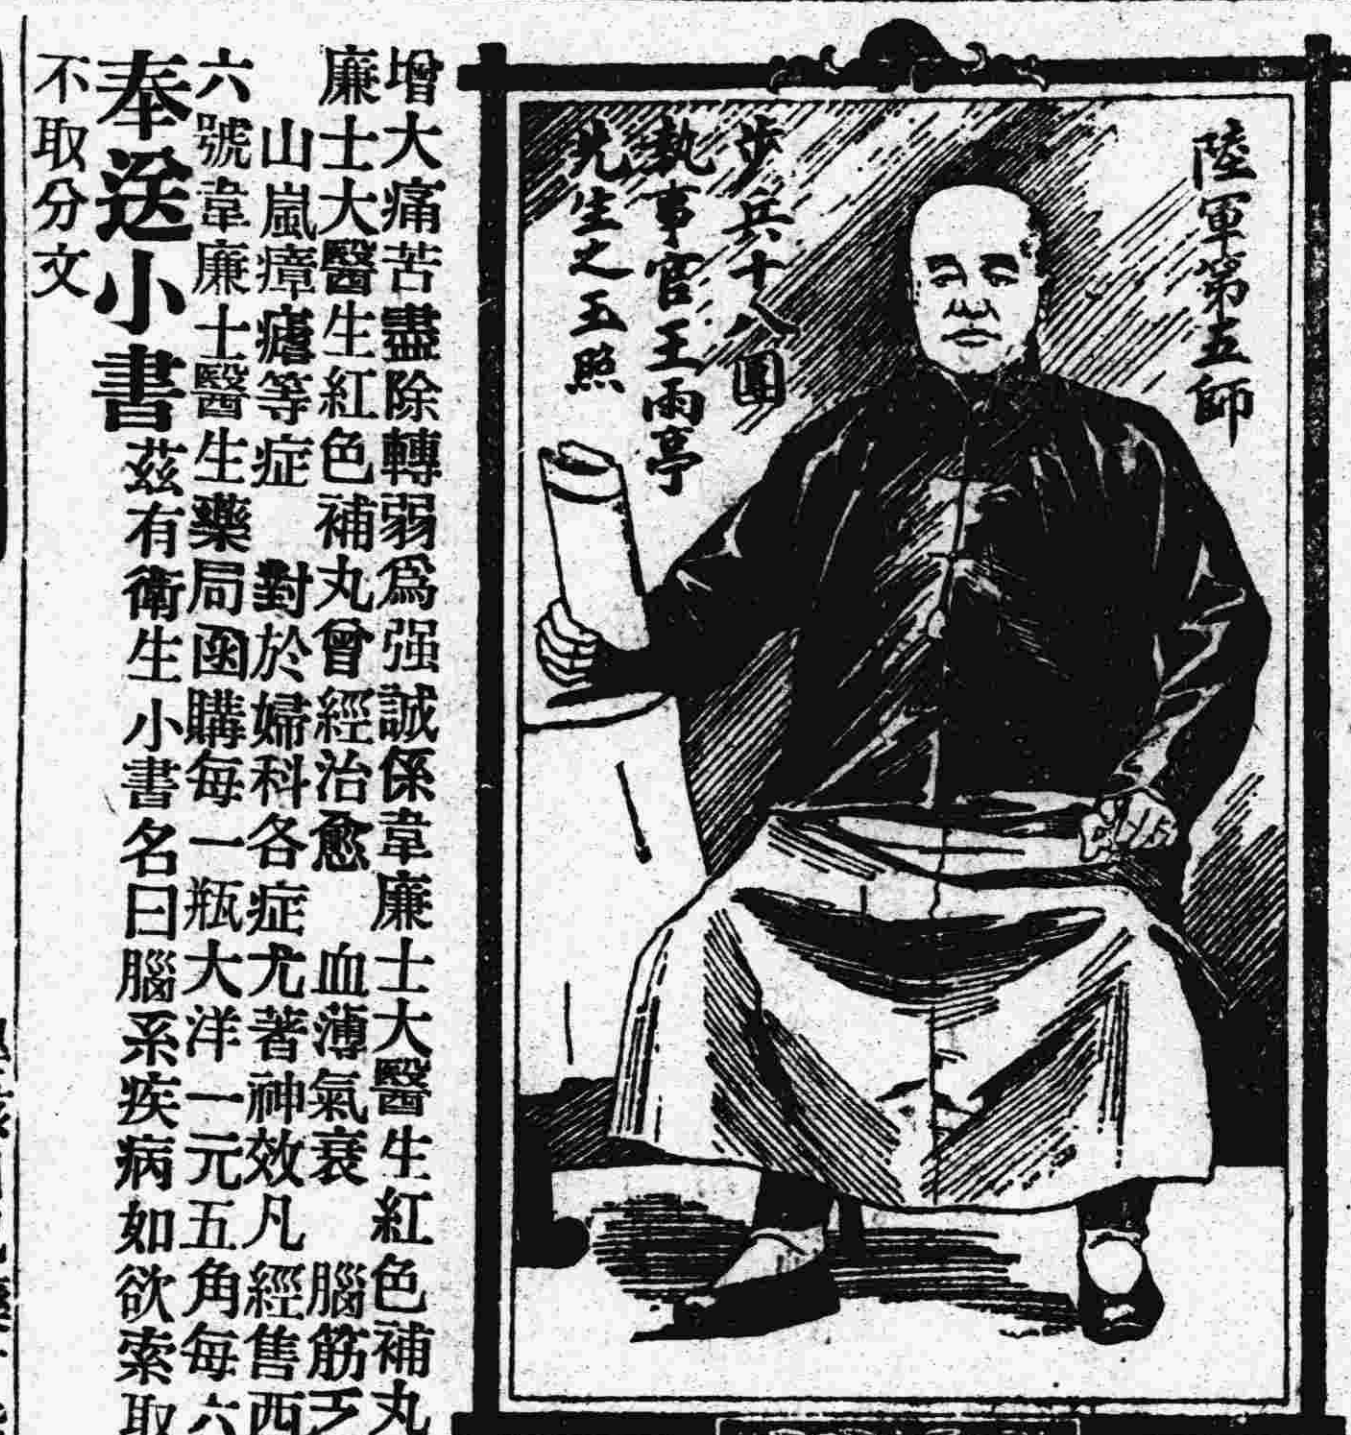 陸軍第五師
步兵十八團
執事官王雨亭
先生之玉照
增大痛苦盡除轉弱爲强誠係韋廉士大醫生紅色補丸
廉士大醫生紅色補丸曾經治愈 血薄氣衰 腦筋乏
山嵐瘴瘧等症 對於婦科各症尤著神效凡經售西
六號韋廉士醫生藥局函購每一瓶大洋一元五角每六
奉送小書 茲有衛生小書名曰腦系疾病如欲索取
不取分文